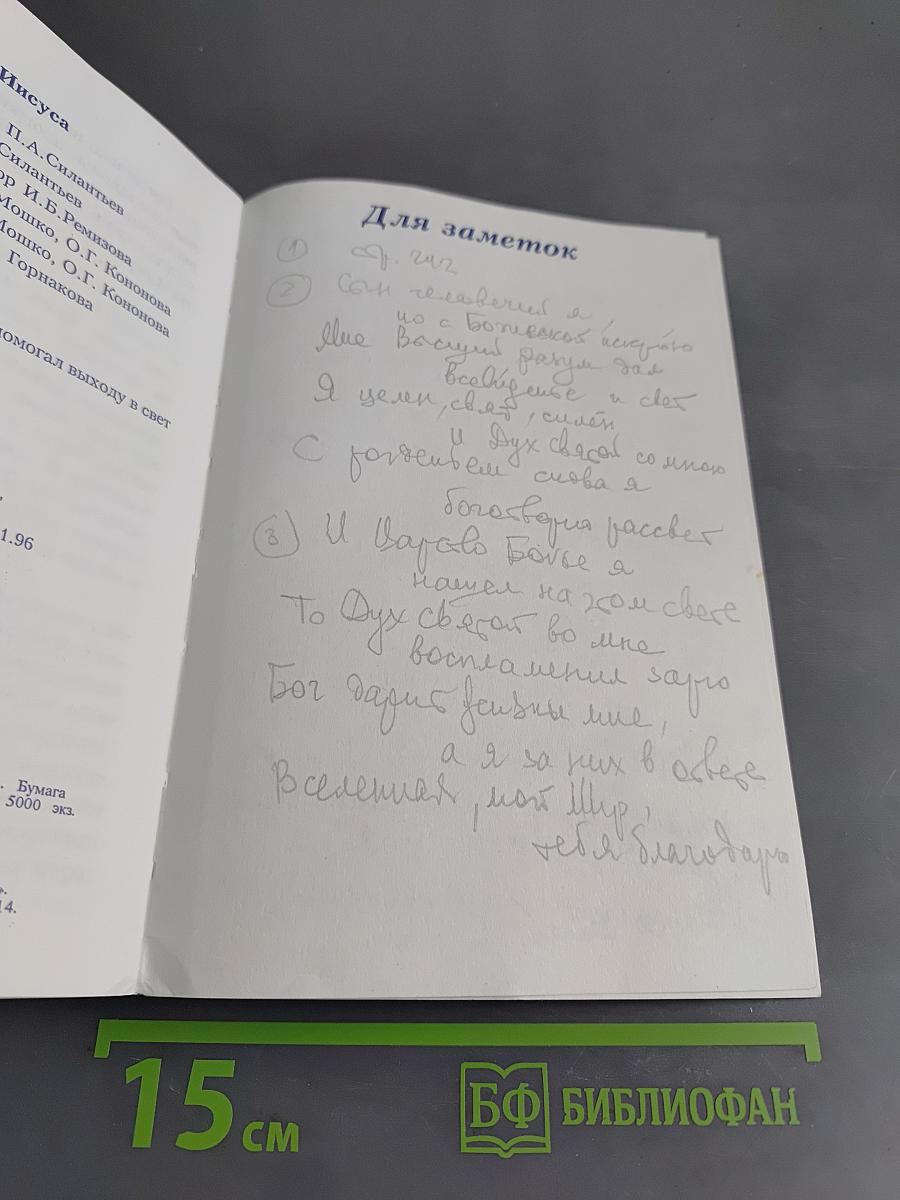 Иисуса
П.А.Силантьев
Силантьев
ор И.Б.Ремизова
Мошко, О.Г. Кононова
Мошко, О.Г. Кононова
Горнакова
помогал выходу в свет
1.96
Бумага
5000 экз.
14.
Для заметок
1 стр. 242
2 Сын человечий я,
но с Божеской искрою
Мне Высший разум дал
всевиденье и свет
Я целен, свят, силен
И Дух святой со мною
С рожденьем снова я
боготворил рассвет
3 И Царство Божье я
нашел на этом свете
То Дух святой во мне
воспламенил зарю
Бог дарит жизни мне,
а я за них в ответе
Вселенная, мой Мир,
тебя благодарю
15 см
БФ БИБЛИОФАН